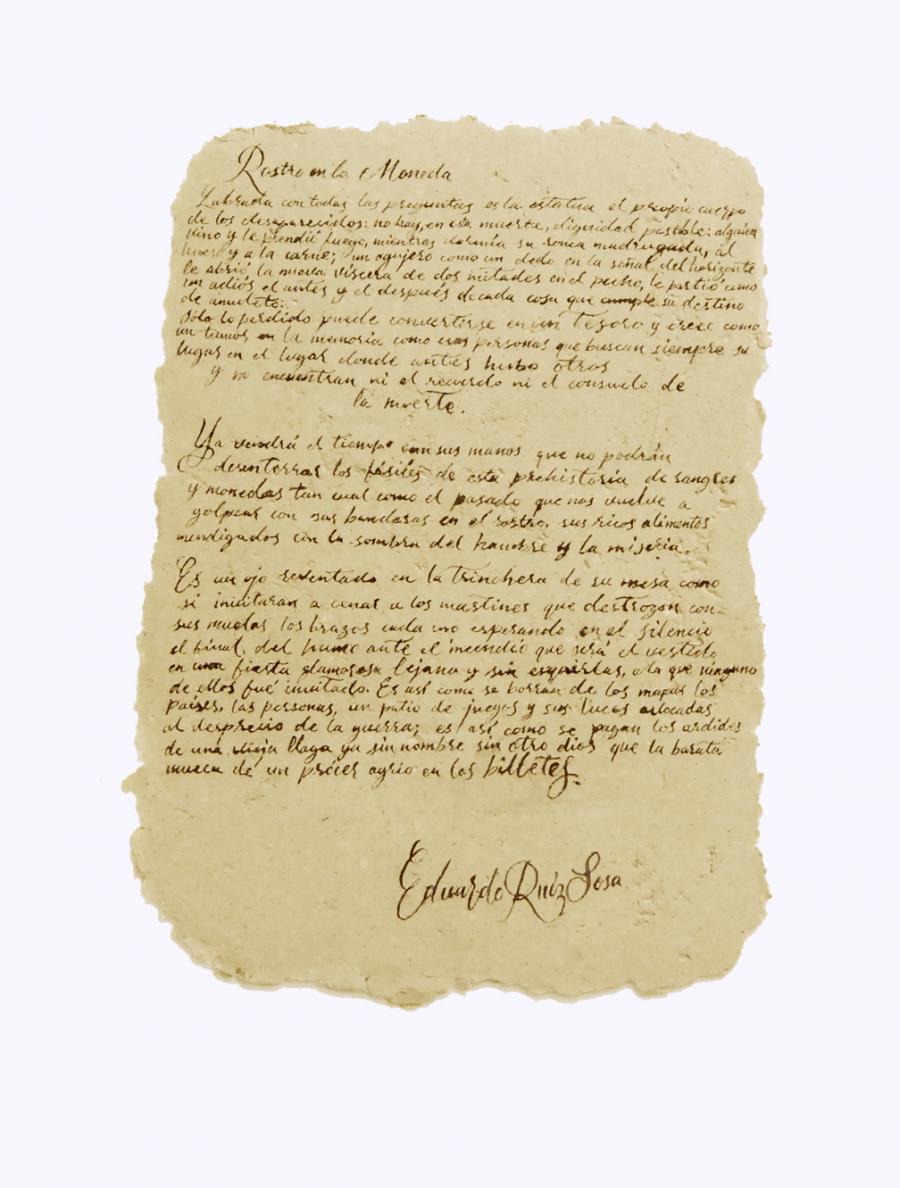 Rostro en la Moneda
Labrada con todas las preguntas es la estatua el propio cuerpo
de los desaparecidos: no hay, en esa muerte, dignidad posible: alguien
vino y le prendió fuego, mientras dormía su ronca madrugada, al
hueso y a la carne; un agujero como un dedo en la señal del horizonte
le abrió la nueva víscera de dos mitades en el pecho, le partió como
un adiós el antes y el después de cada cosa que cumple su destino
de amuleto:
Sólo lo perdido puede convertirse en un Tesoro y crece como
un tumor en la memoria como esas personas que buscan siempre su
lugar en el lugar donde antes hubo otros
y no encuentran ni el recuerdo ni el consuelo de
la muerte.
Ya vendrá el tiempo con sus manos que no podrán
desenterrar los fósiles de esta prehistoria de sangres
y monedas tan cual como el pasado que nos vuelve a
golpear con sus banderas en el rostro, sus ricos alimentos
mendigados con la sombra del hambre y la miseria.
Es un ojo reventado en la trinchera de su mesa como
si invitaran a cenar a los mastines que destrozan con
sus muelas los brazos cada uno esperando en el silencio
el final del humo ante el incendio que será el vestido
en una fiesta glamorosa lejana y sin esquirlas, a la que ninguno
de ellos fué invitado. Es así como se borran de los mapas los
países, las personas, un patio de juegos y sus luces
al desprecio de la guerra; es así como se pagan los ardides
de una vieja llaga ya sin nombre sin otro dios que la barata
mueca de un prócer agrio en los billetes.
Eduardo Ruiz Sosa